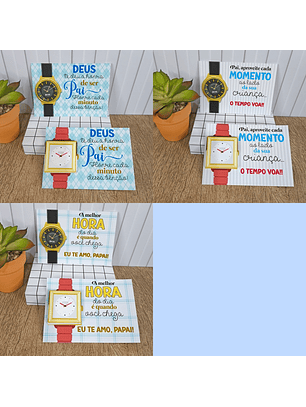 DEUS
te deu honra
de ser
Pai
Honre cada
minuto
dessa benção!
DEUS
te deu honra
de ser
Pai
Honre cada
minuto
dessa benção!
Pai, aproveite cada
MOMENTO
ao lado
da sua
criança.
O TEMPO VOA!!
Pai, aproveite cada
MOMENTO
ao lado
da sua
criança.
O TEMPO VOA!!
A melhor
HORA
do dia
é quando
você chega.
EU TE AMO, PAPAI!
A melhor
HORA
do dia
é quando
você chega.
EU TE AMO, PAPAI!